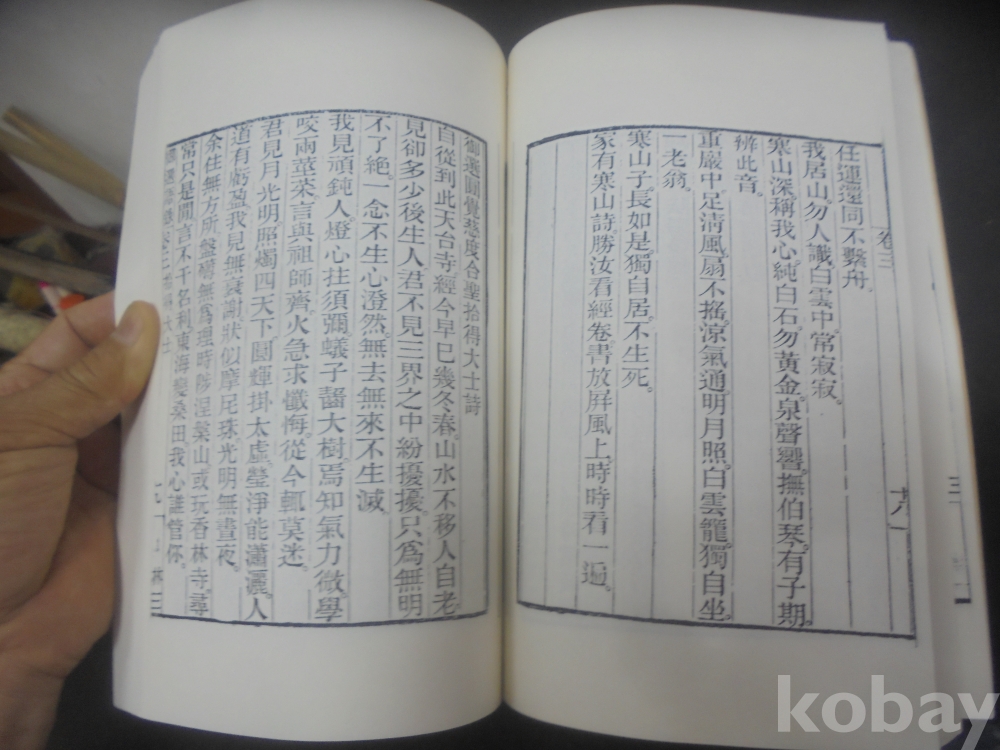 卷三
任運還同不繫舟。
我居山。勿人識。白雲中。常寂寂。
寒山深。稱我心。純白石。勿黃金。泉聲響。撫伯琴。有子期。
辨此音。
重巖中。足清風。扇不搖。涼氣通。明月照。白雲籠。獨自坐。
一老翁。
寒山子。長如是。獨自居。不生死。
家有寒山詩。勝汝看經卷。書放屏風上。時時看一遍。
御選圓覺慈度合聖拾得大士詩
自從到此天台寺。經今早已幾冬春。山水不移人自老。
見卻多少後生人。君不見。三界之中紛擾擾。只為無明
不了絕。一念不生心澄然。無去無來不生滅。
我見頑鈍人。燈心拄須彌。蟻子齧大樹。焉知氣力微。學
咬兩莖菜。言與祖師齊。火急求懺悔。從今輒莫迷。
君見月光明。照燭四天下。圓輝掛太虛。瑩淨能瀟灑。人
道有虧盈。我見無衰謝。狀似摩尼珠。光明無晝夜。
余住無方所。盤礴無為理。時陟涅槃山。或玩香林寺。尋
常只是閒。言不干名利。東海變桑田。我心誰管你。
kobay